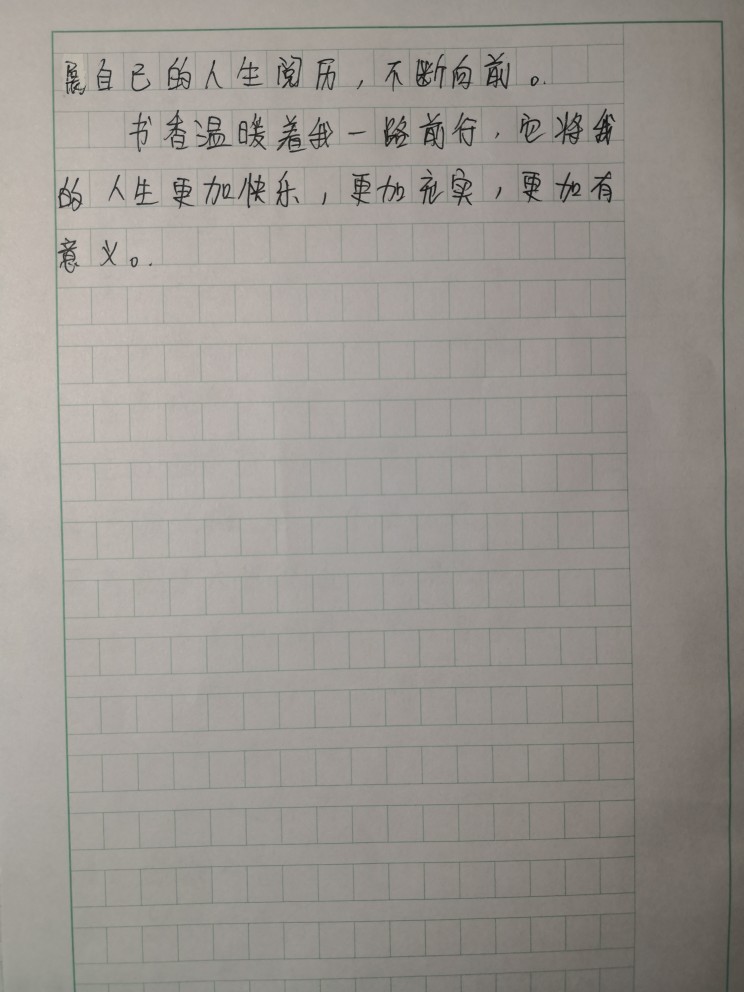 展自己的人生阅历，不断向前。
书香温暖着我一路前行，它将我
的人生更加快乐，更加充实，更加有
意义。